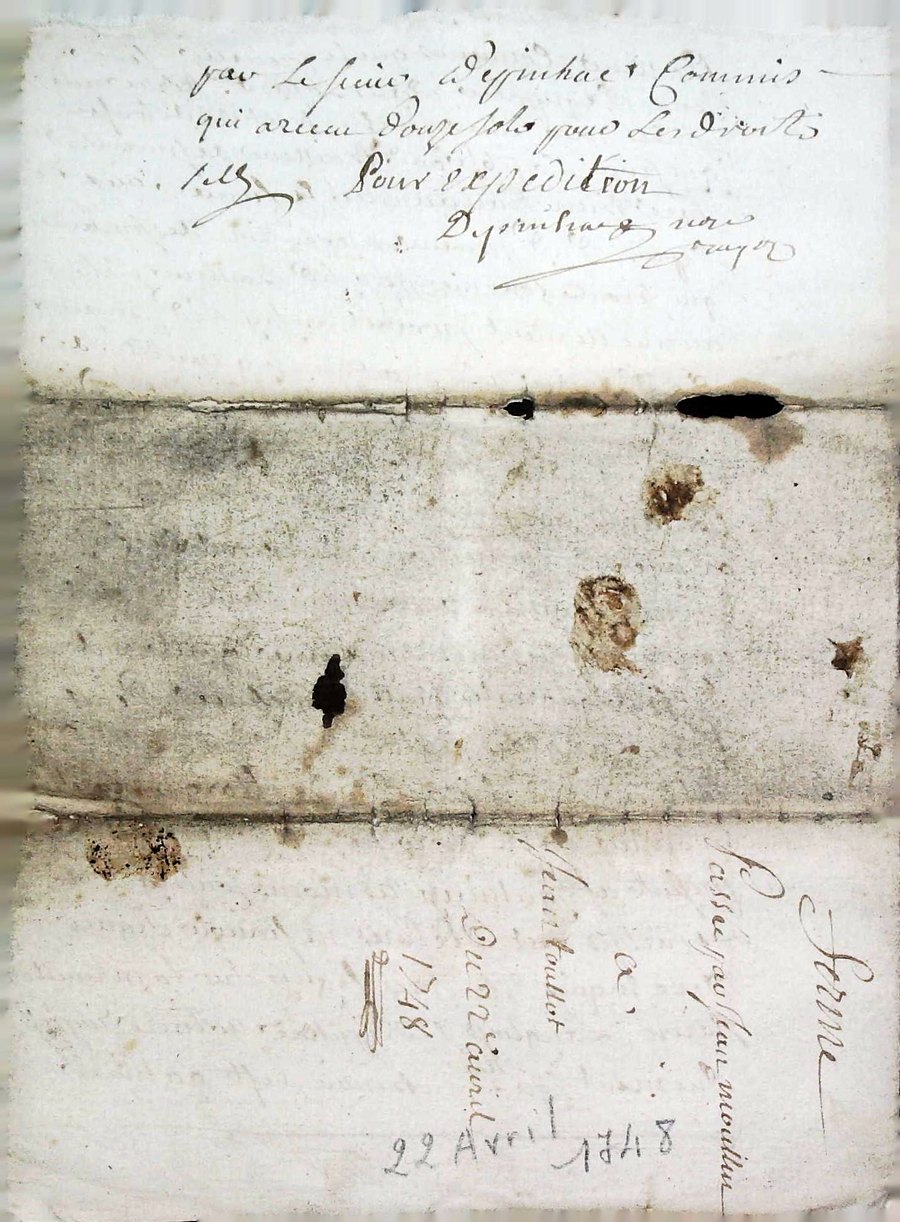 par Le sieur Depinhac Commis
qui a receu douze sols pour Les droits
Pour expedition
Depinhac nore
royal
Ferme
Passée par Jean mouillu
a
Jean touillot
Du 22e auril
1748
22 Avril 1748